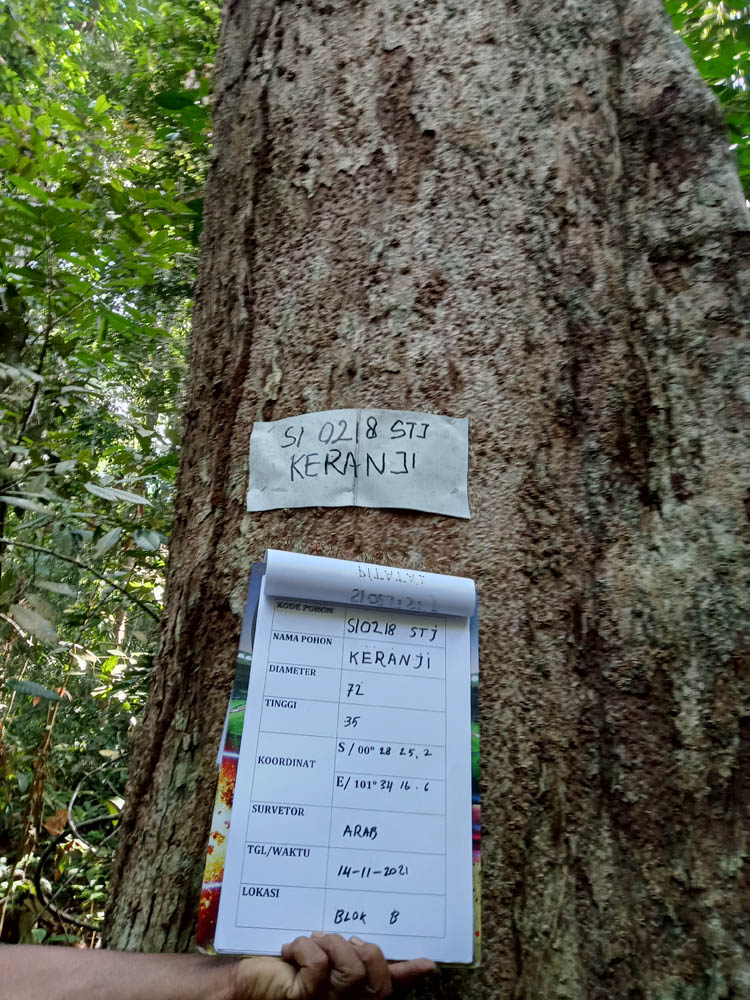 SI 0218 STJ
KERANJI
KODE POHON SI0218 STJ
NAMA POHON KERANJI
DIAMETER 72
TINGGI 35
KOORDINAT S/ 00° 28 25,2
E/ 101° 34 16.6
SURVETOR ARAB
TGL/WAKTU 14-11-2021
LOKASI BLOK B